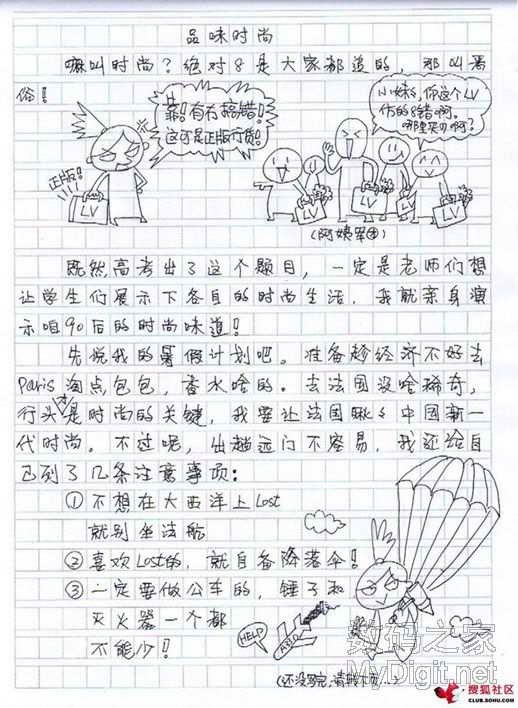 品味时尚
嘛叫时尚？绝对8是大家都追的，那叫庸
俗！
靠！有冇搞错！
这可是正版行货！
小妹s，你这个LV
仿的8错啊。
哪里买d啊？
正版！
LV
LV
LV
LV
LV
（阿姨军团）
既然高考出了这个题目，一定是老师们想
让学生们展示下各自的时尚生活，我就亲身演
示咱90后的时尚味道！
先说我的暑假计划吧。准备趁经济不好去
Paris淘点包包，香水啥的。去法国没啥稀奇，
行头才是时尚的关键，我要让法国瞅s中国新一
代时尚。不过呢，出趟远门不容易，我还给自
己列了几条注意事项：
①不想在大西洋上Lost
就别坐法航
②喜欢Lost的，就自备降落伞！
③一定要做公车的，锤子和
灭火器一个都
不能少！
HELP
A330
（还没写完，请转下页...）
数码之家
MyDigit.net
搜狐社区
CLUB.SOHU.COM